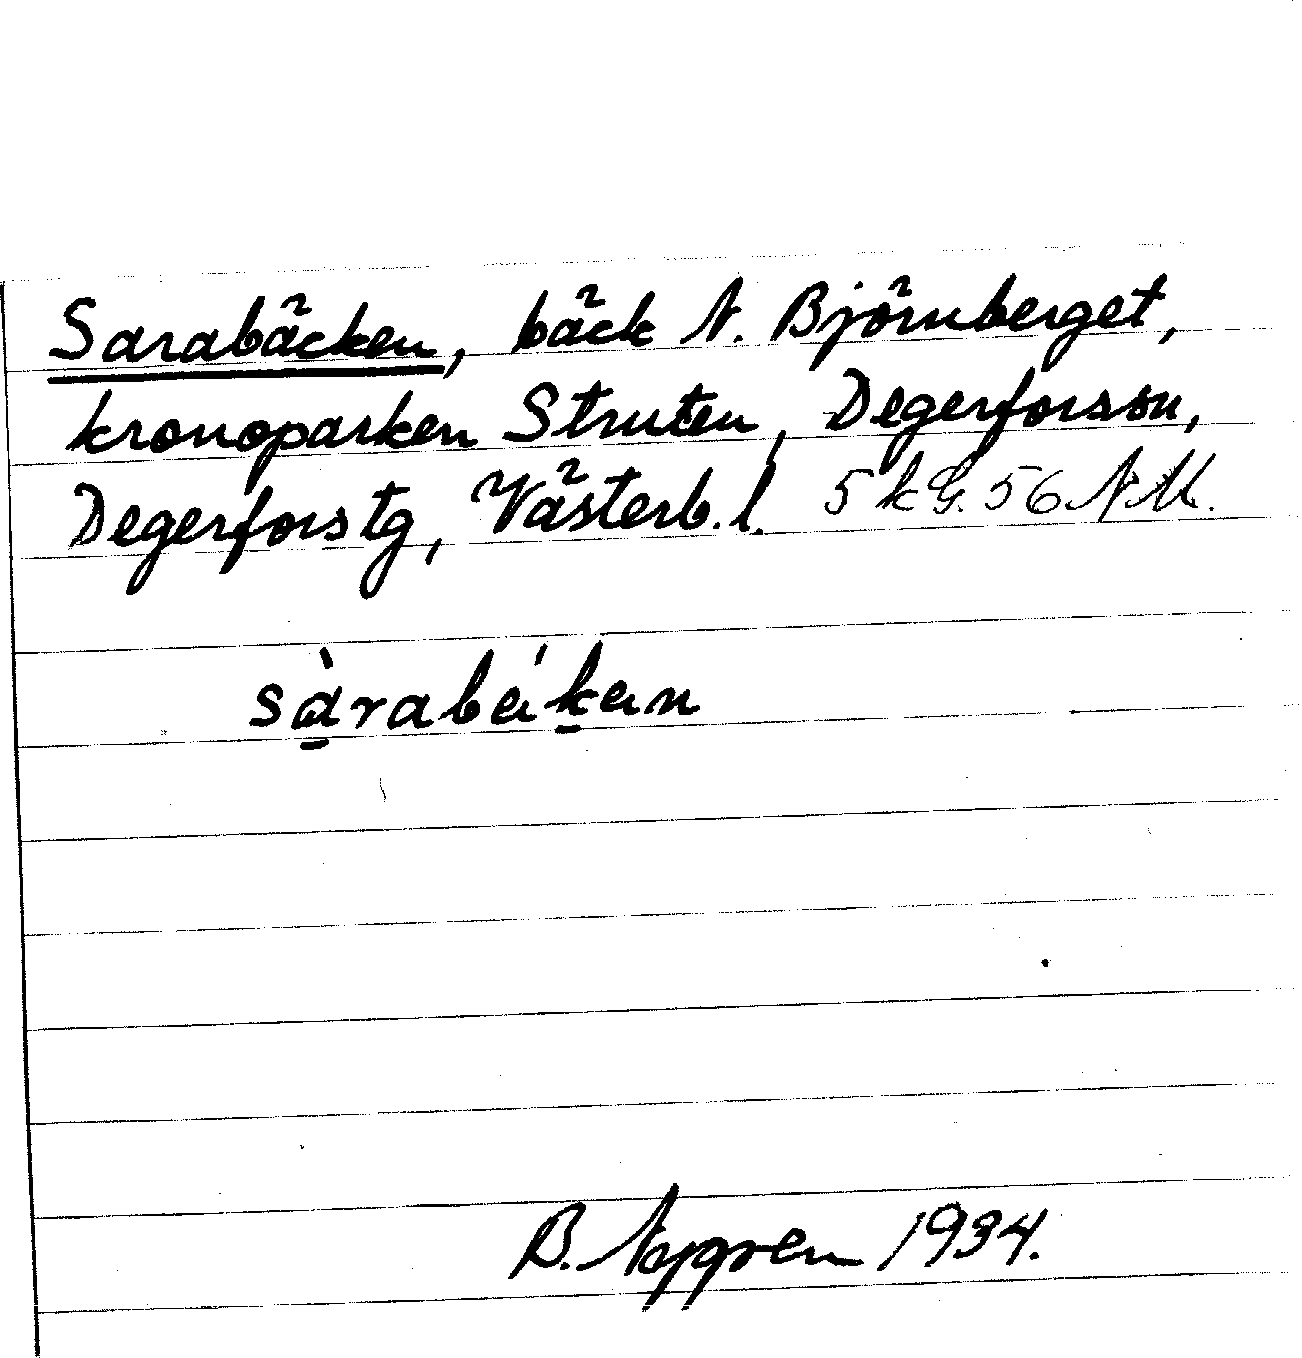 Sarabäcken, bäck N. Björnberget,
kronoparken Struten, Degerforssn,
Degerforstg, Västerb.l. 5 kG. 56 N M.
B. Nygren 1934.